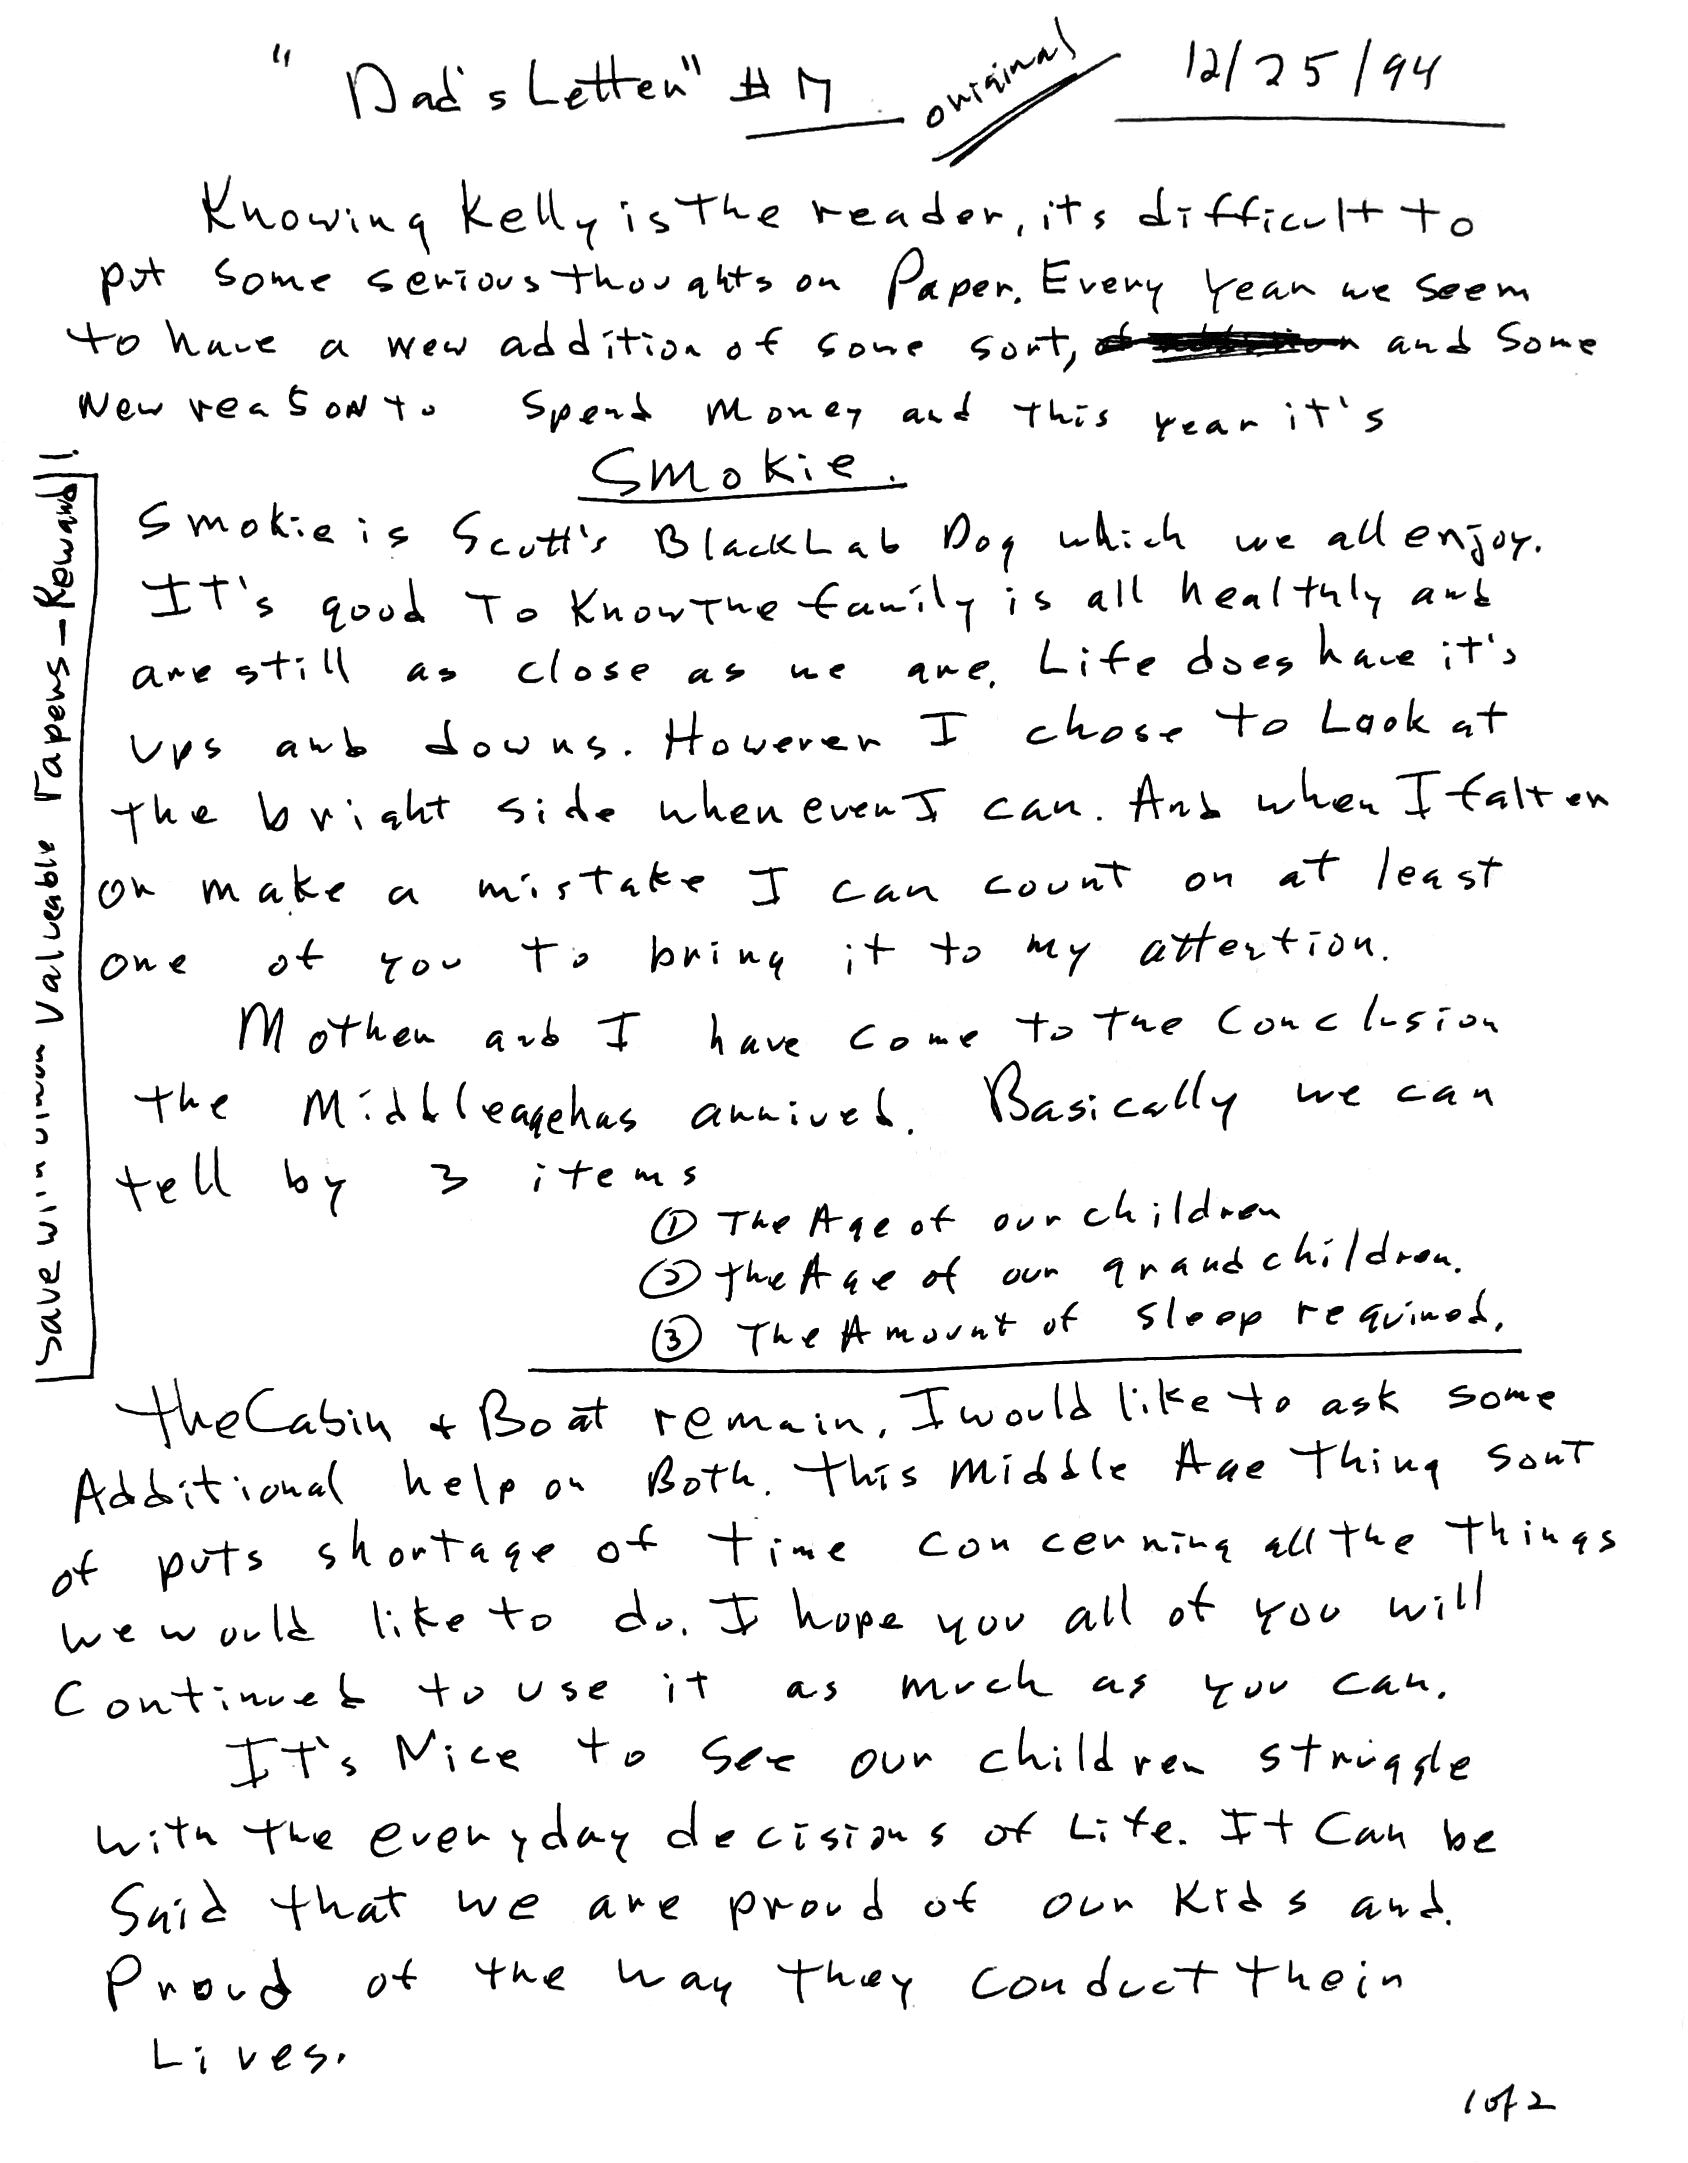 "Dad's Letter" # 7 original 12/25/94
Knowing Kelly is the reader, its difficult to
put some serious thoughts on Paper. Every year we seem
to have a new addition of some sort, and some
New reason to spend money and this year it's
Smokie.
Smokie is Scott's Black Lab Dog which we all enjoy.
It's good To Know The family is all healthly and
are still as close as we are. Life does have it's
ups and downs. However I chose to Look at
the bright side whenever I can. And when I falter
or make a mistake I can count on at least
one of you to bring it to my attention.
Mother and I have come to the conclusion
the Middle age has arrived. Basically we can
tell by 3 items
① The Age of our children
② The Age of our grandchildren.
③ The Amount of sleep required.
The Cabin + Boat remain. I would like to ask some
Additional help on Both. This Middle Age Thing sort
of puts shortage of time concerning all the things
we would like to do. I hope you all of you will
Continued to use it as much as you can.
It's Nice to see our children struggle
with the everyday decisions of Life. It Can be
Said that we are proud of our Kids and.
Proud of the way they conduct their
Lives.
1 of 2
Save with Valueable Papers - Reward!!